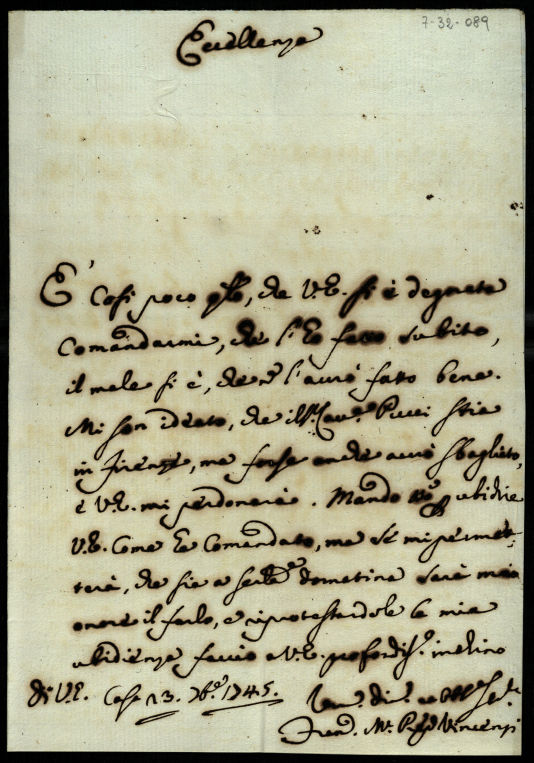 7-32-089
Eccellenza
E' così poco qllo, che V.E. si è degnata
Comandarmi, che l'ho fatto subito,
il male si è, che nō l'avrò fatto bene.
Mi son ideato, che il Sr. Cavre Pucci stia
in Firenze, ma forse anche avrò sbagliato,
e V.E. mi perdonerà. Mando ubidire
V.E. come ha comandato, ma se mi permet-
terà, che sia a domatina sarà mio
onore il farlo, e riprotestandole la mia
ubidienza faccio a V.E. profondismo inchino
di V.E. Casa 23. 7bre 1745.
Ferd. Mª Vincenzi